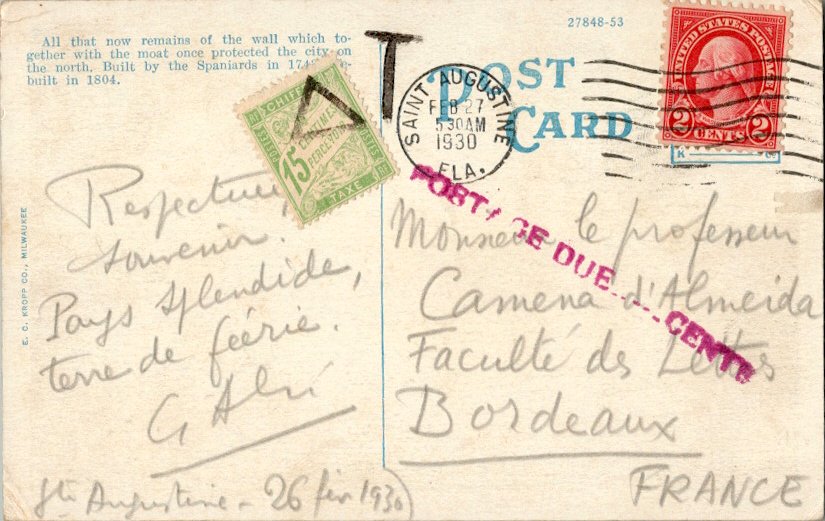 27848-53
All that now remains of the wall which to-
gether with the moat once protected the city on
the north. Built by the Spaniards in
built in 1804.
POST
CARD
T
SAINT AUGUSTINE
FEB 27
5 30 AM
1930
FLA.
UNITED STATES POSTAGE
2 CENTS 2
CHIFFRE
15
CENTIMES A
PERCEVOIR
TAXE
POSTAGE DUE CENTS
E. C. KROPP CO., MILWAUKEE
Respectueux
souvenir.
Pays splendide,
terre de féérie.
Ste Augustine - 26 fév 1930
Monsieur le professeur
Camena d'Almeida
Faculté des Lettres
Bordeaux
FRANCE